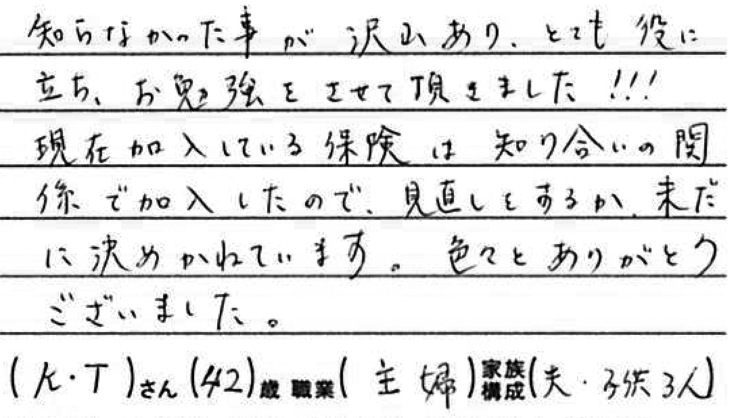 知らなかった事が沢山あり、とても役に
立ち、お勉強をさせて頂きました!!!
現在加入している保険は知り合いの関
係で加入したので、見直しをするか、未だ
に決めかねています。色々とありがとう
ございました。
(K・T)さん(42)歳 職業(主婦)家族構成(夫・子供3人)